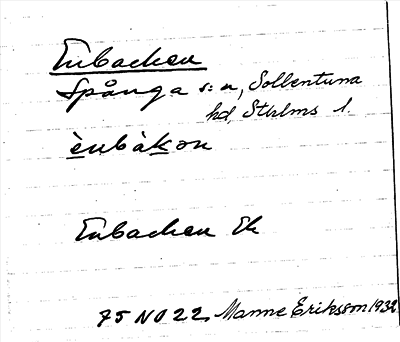 Enbacken
Spånga s:n, Sollentuna
hd, Sthlms l.
ènbàkən
Enbacken Ek
75 NO 22 Manne Eriksson 1932